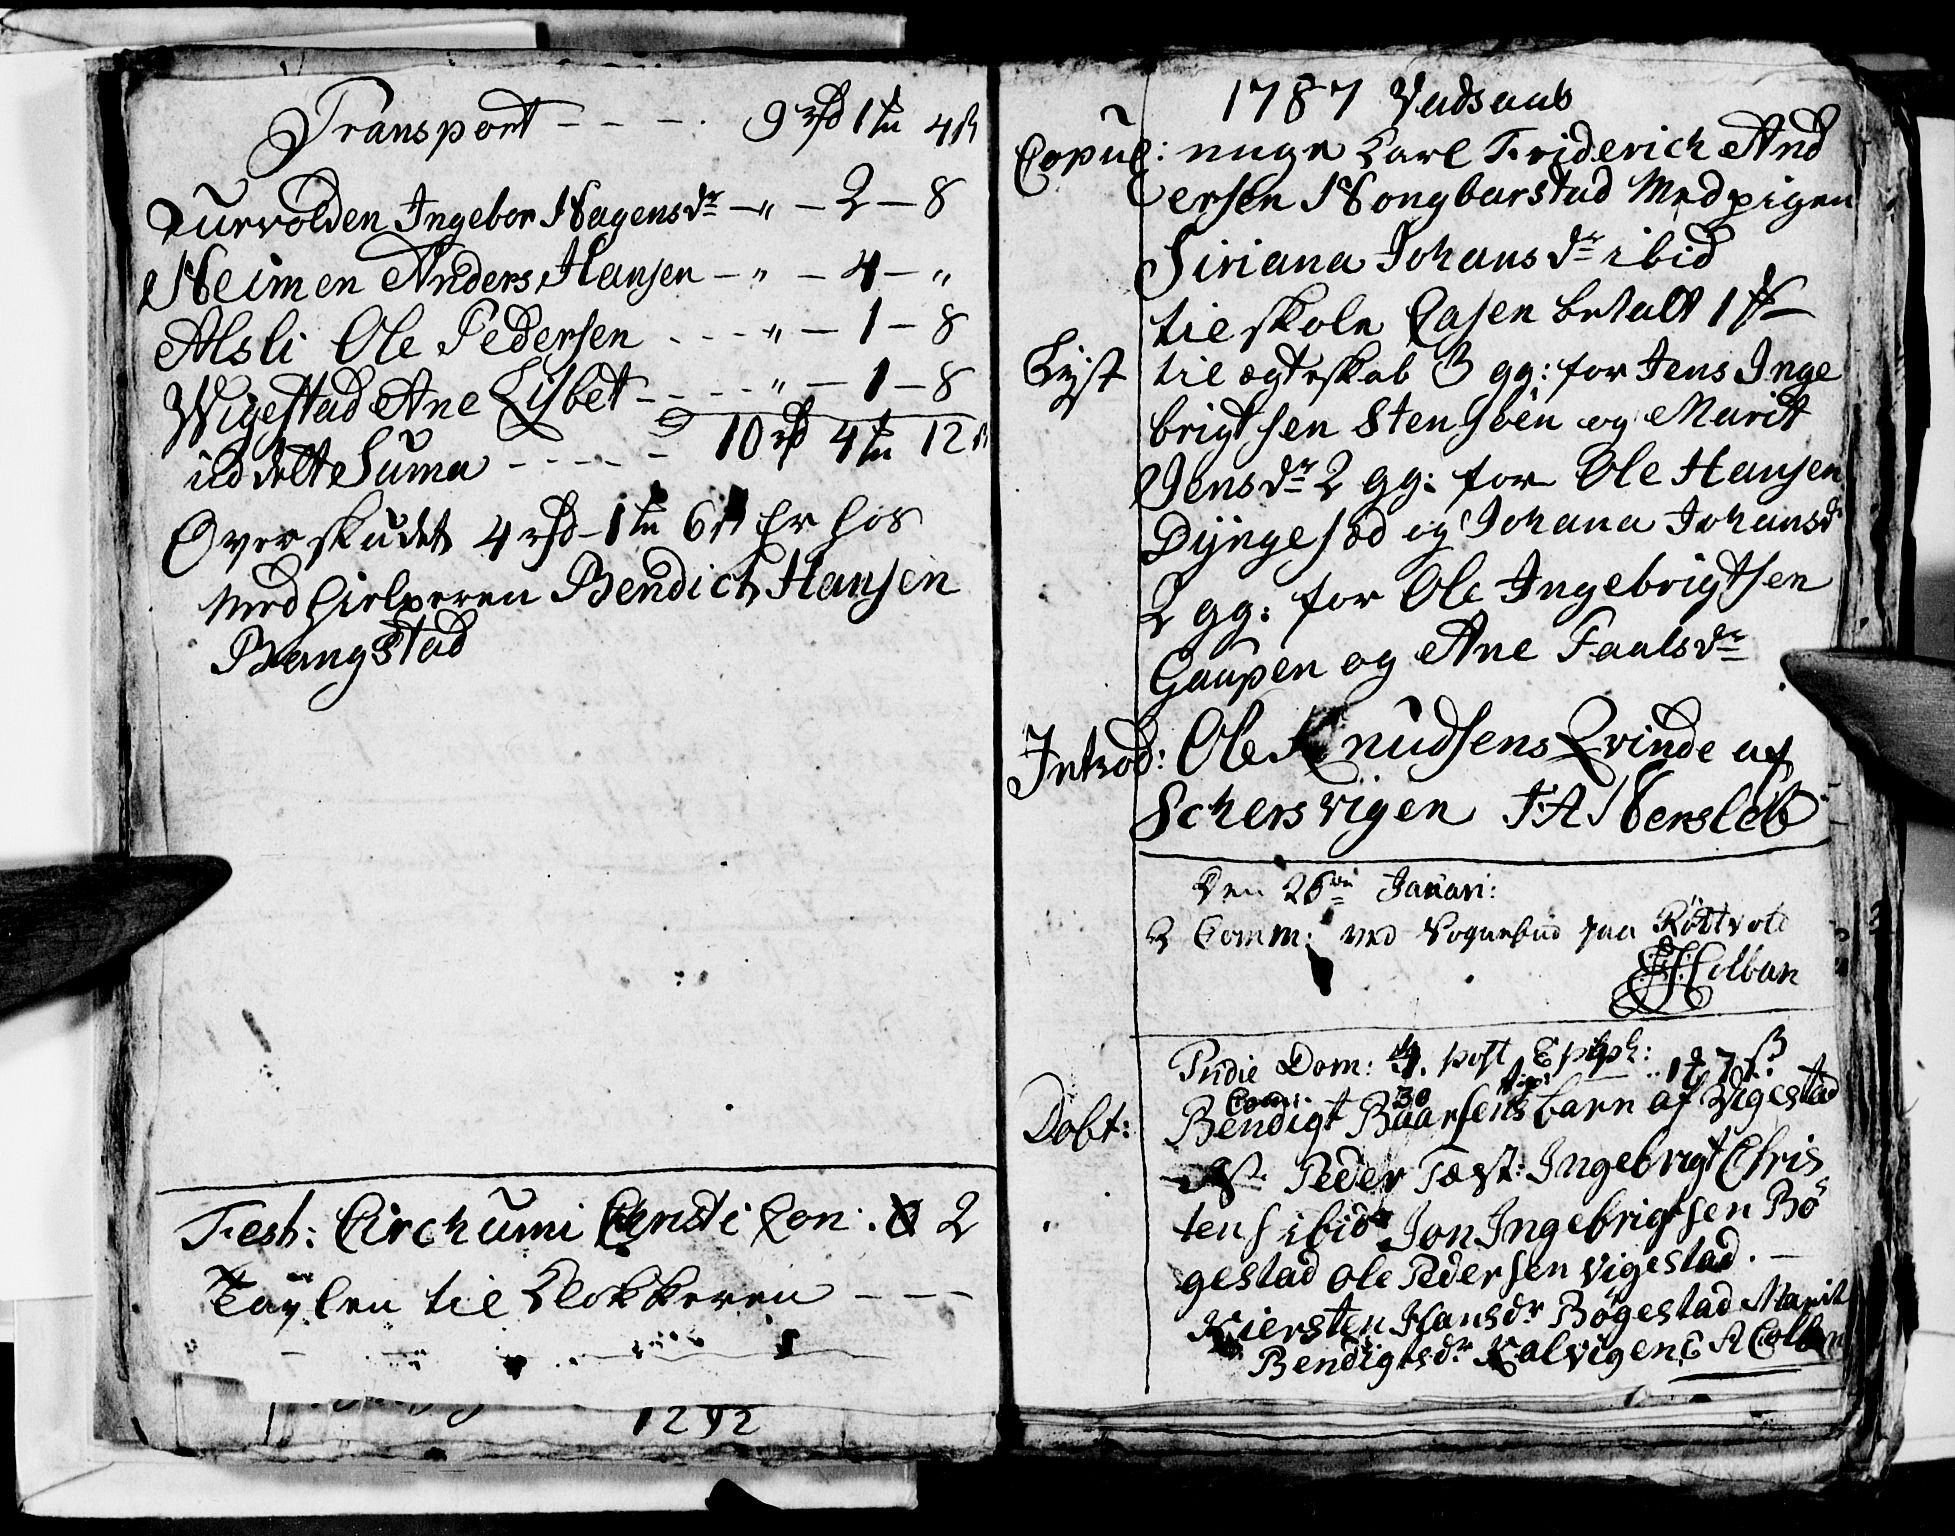 Transport - - - - 9 rd 1 m 4 ß
Turvolden Ingebor Hagensdr - " - 2 - 8
Heimen Anders Hansen - " - 4 - "
Alsli Ole Pedersen - - - " - 1 - 8
Wigestad Ane Lisbet - - - - " - 1 - 8
ud delt Suma - - - - - 10 rd 4 m 12 ß
Overskudet 4 rd - 1 m 6 ß Er hos
Medhielperen Bendict Hansen
Bangstad
Fest: Circhumi Con: 2
Taylen til Klokkeren - - -
1292
1787 Vadsaas
Copul: unge Carl Friderich And
ersen Hongbarstad Med pigen
Siriana Johans dr ibid
til skole Casen betalt 1
Lyst til ægteskab 3 gg: for Jens Inge
brigtsen Stensøen og Marit
Jensdr 2 gg: for Ole Hansen
Dyngesød og Johana Johansd
2 gg: for Ole Ingebrigtsen
Gaupen og Ane Faalsdr
Introd: Ole Knudsens Qvinde af
Schersvigen F A Hersleb
Den 26de Januari:
2 Comm: ved Sognebud paa Rödtvold
Colban
Pridie Dom: 4. post Epiph: 1787
Com: 30
Döbt: Bendigt Baarsens barn af Vigestad
Peder Test: Ingebrigt Chris
tens ibid Jon Ingebrigtsen Bö
gestad Ole Pedersen Vigestad. -
Kiersten Hansdr Bögestad Marit
Bendigtsdr Kalvigen E A Colban